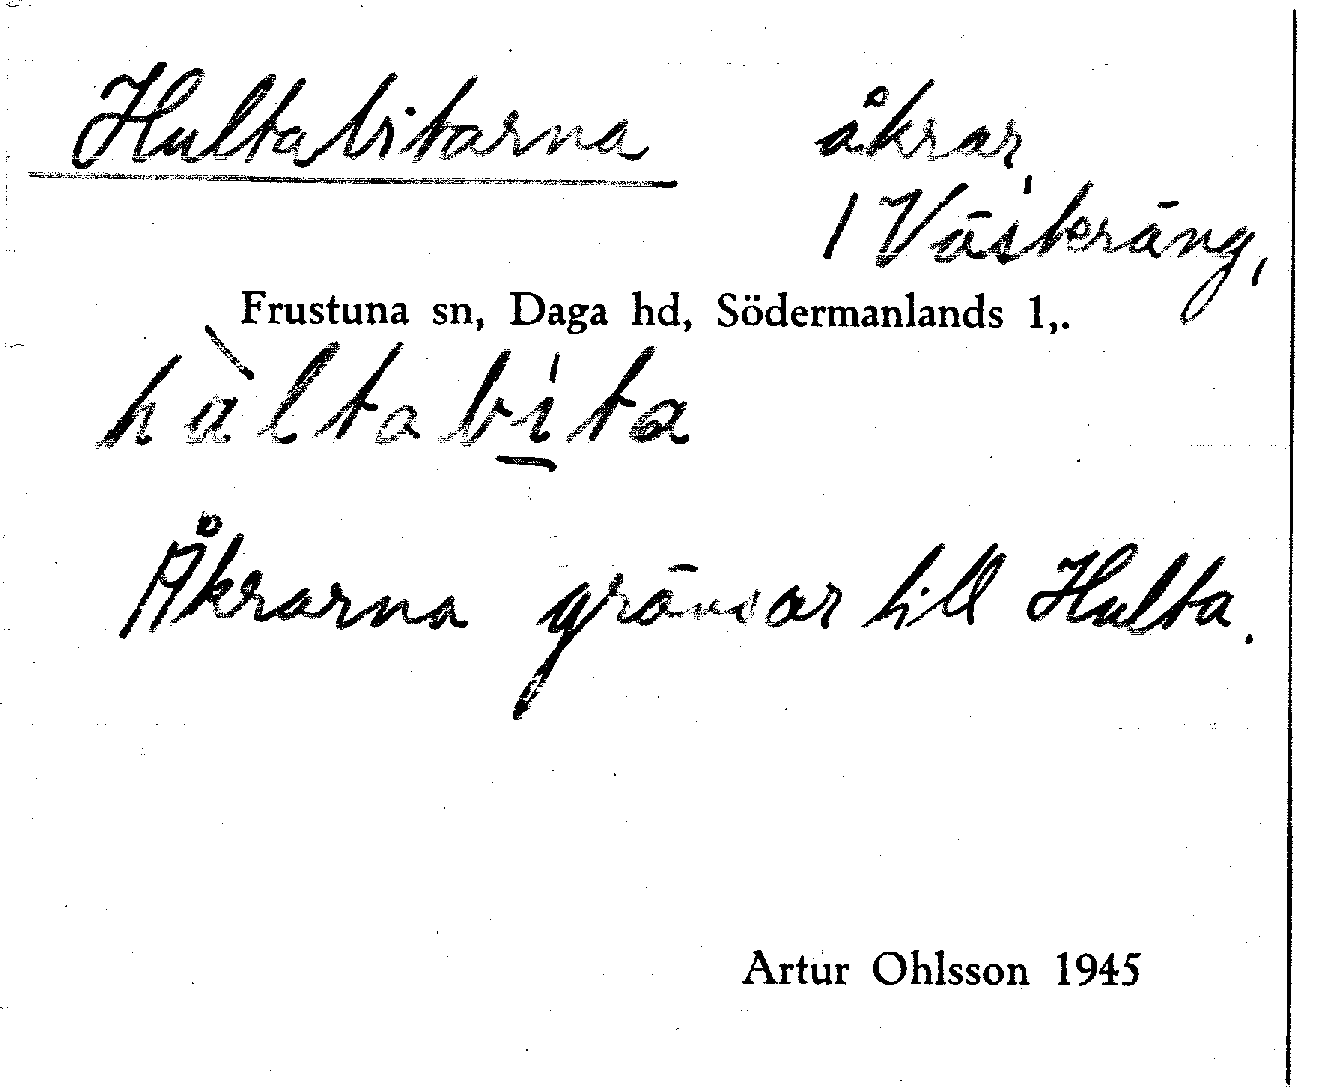 Hultabitarna åkrar,
1 Väskeräng,
Frustuna sn, Daga hd, Södermanlands l,.
hàltabi̱ta
Åkrarna gränsar till Hulta.
Artur Ohlsson 1945